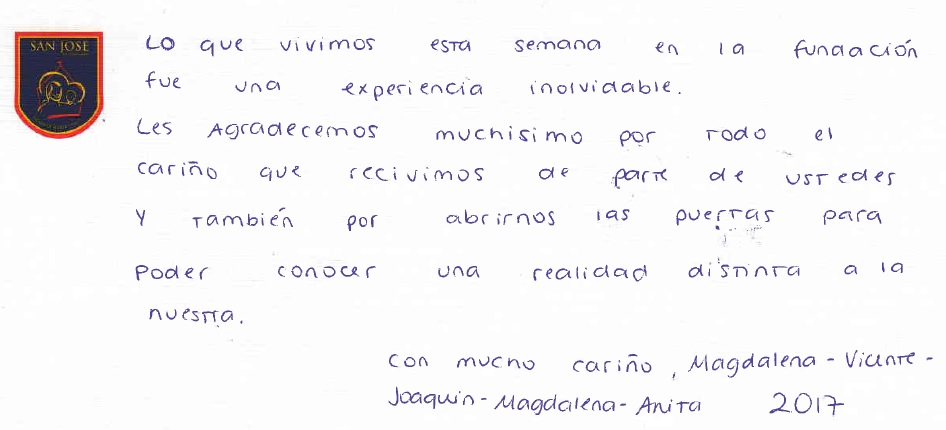 SAN JOSE
Lo que vivimos esta semana en la fundación
fue una experiencia inolvidable.
Les Agradecemos muchisimo por todo el
cariño que recivimos de parte de ustedes
Y también por abrirnos las puertas para
Poder conocer una realidad distinta a la
nuestra.
con mucho cariño, Magdalena - Vicente -
Joaquin - Magdalena - Anita 2017